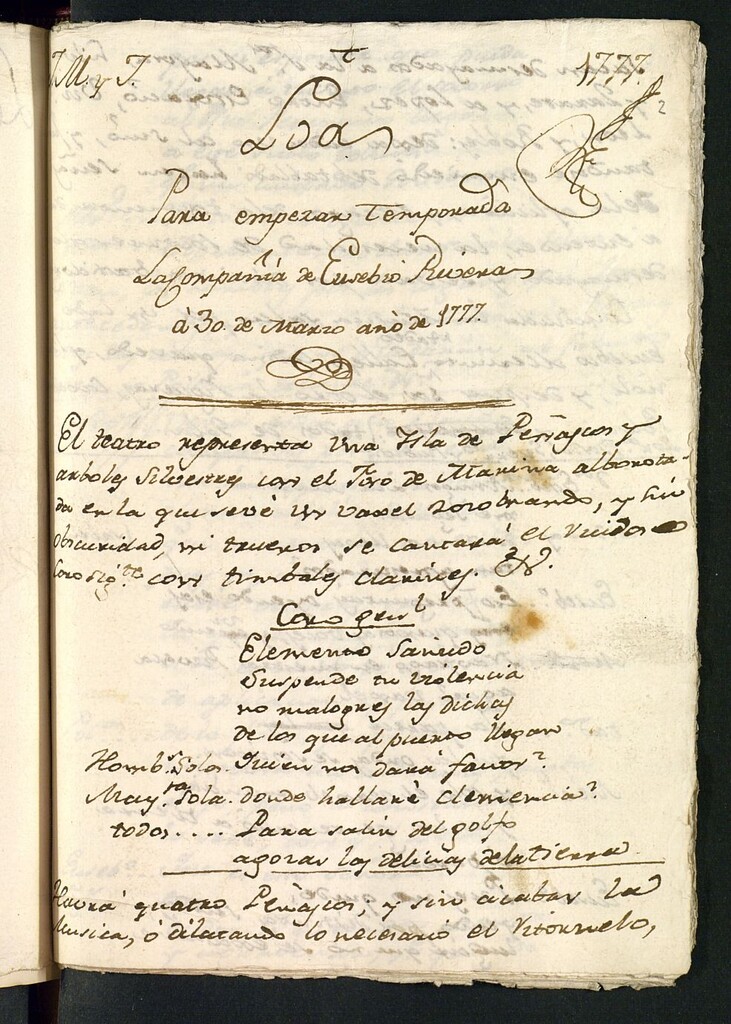 J. M. y J. 1777.
Loa
Para empezar Temporada
La Compañia de Eusebio Rivera
à 30. de Marzo año de 1777.
El teatro representa una Isla de Peñascos y
arboles silvestres con el Foro de Marina alborota-
da en la que se vè un vaxel zozobrando, y sin
obscuridad, ni truenos se cantarà el
Coro sig.te con timbales clarines. &.
Coro gen.l
Elemento sañudo
suspende tu violencia
no malogres las dichas
de los que al puerto llegan
Homb.s Solos. Quien nos darà favor?
May.ra Sola. donde hallarè clemencia?
todos.... Para salir del golfo
a gozar las delicias de la tierra
Havrà quatro Peñascos; y sin acabar la
Musica, ò dilatando lo necesario el ritornelo,